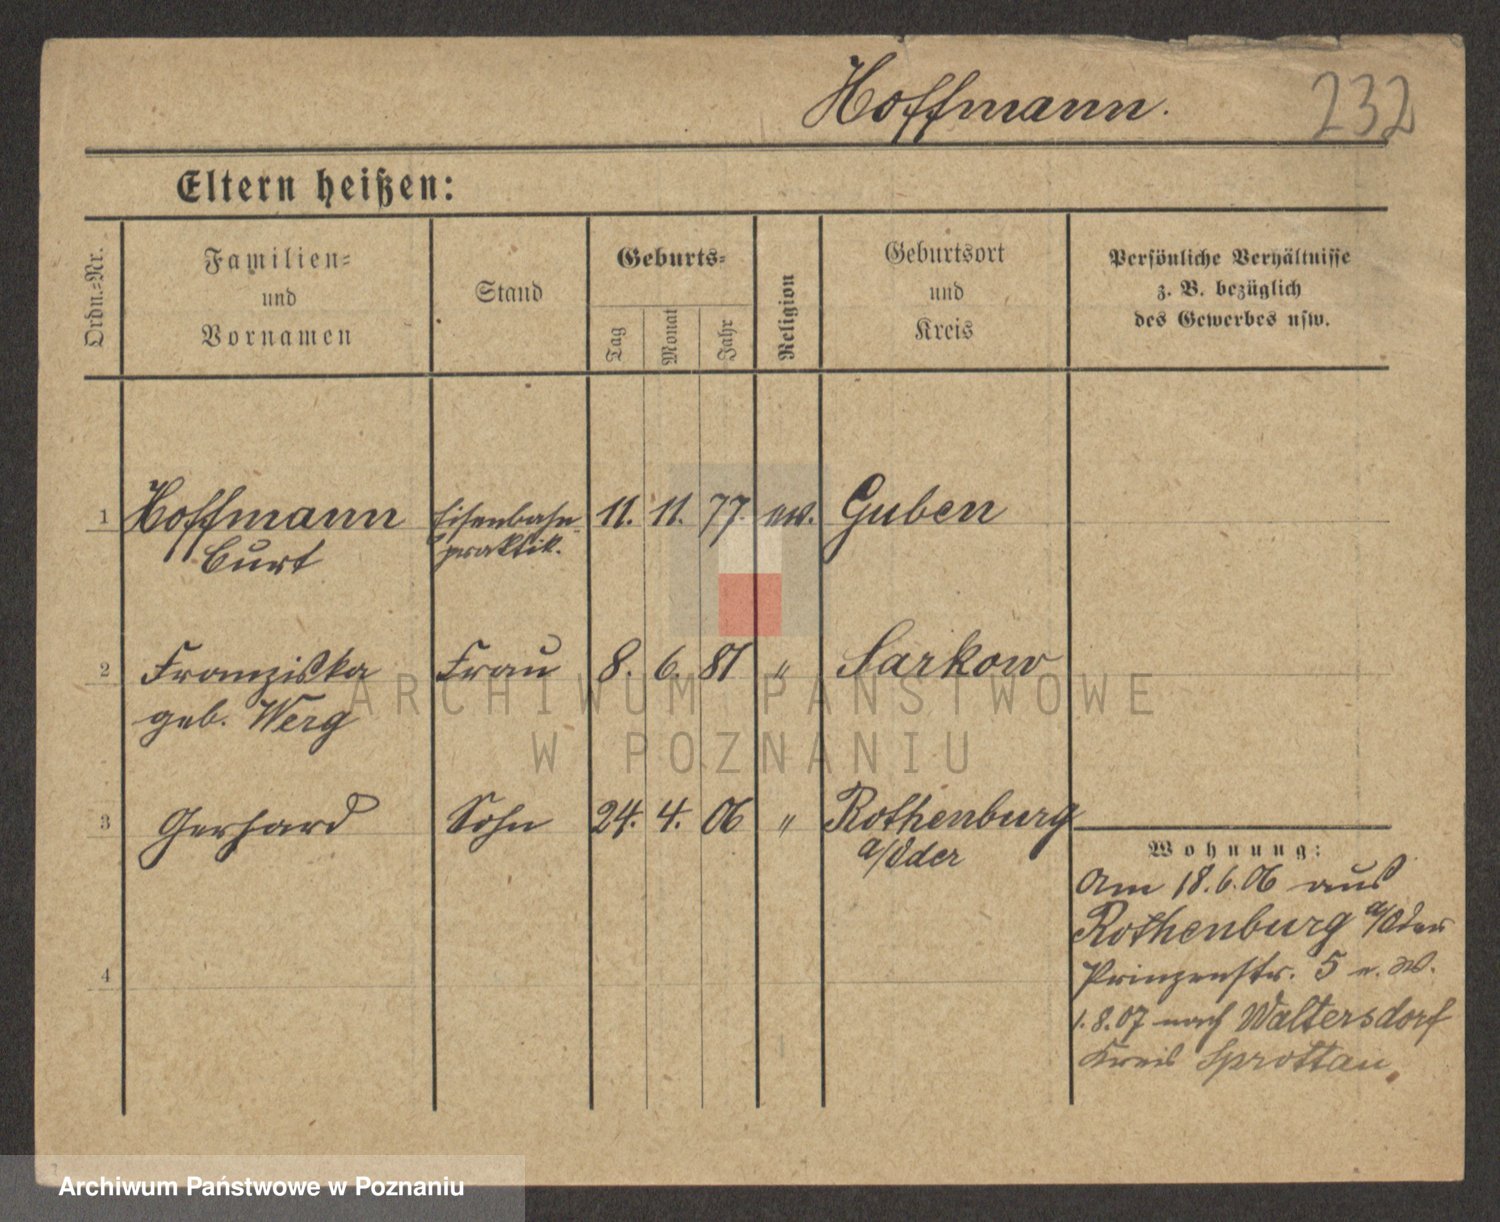 Hoffmann.
232
Eltern heißen:
Ordn.-Nr.
Familien-
und
Vornamen
Stand
Geburts-
Tag
Monat
Jahr
Religion
Geburtsort
und
Kreis
Persönliche Verhältnisse
z. B. bezüglich
des Gewerbes usw.
1 Hoffmann Eisenbahn- 11. 11. 77. ev. Guben
Curt praktik.
2 Franziska Frau 8. 6. 81 " Sarkow
geb. Werg
3 Gerhard Sohn 24. 4. 06 " Rothenburg
a/Oder
4
Wohnung:
Am 18.6.06 aus
Rothenburg a/Oder
Prinzenstr. 5
1.8.07 nach Waltersdorf
Kreis Sprottau.
ARCHIWUM PAŃSTWOWE
W POZNANIU
Archiwum Państwowe w Poznaniu